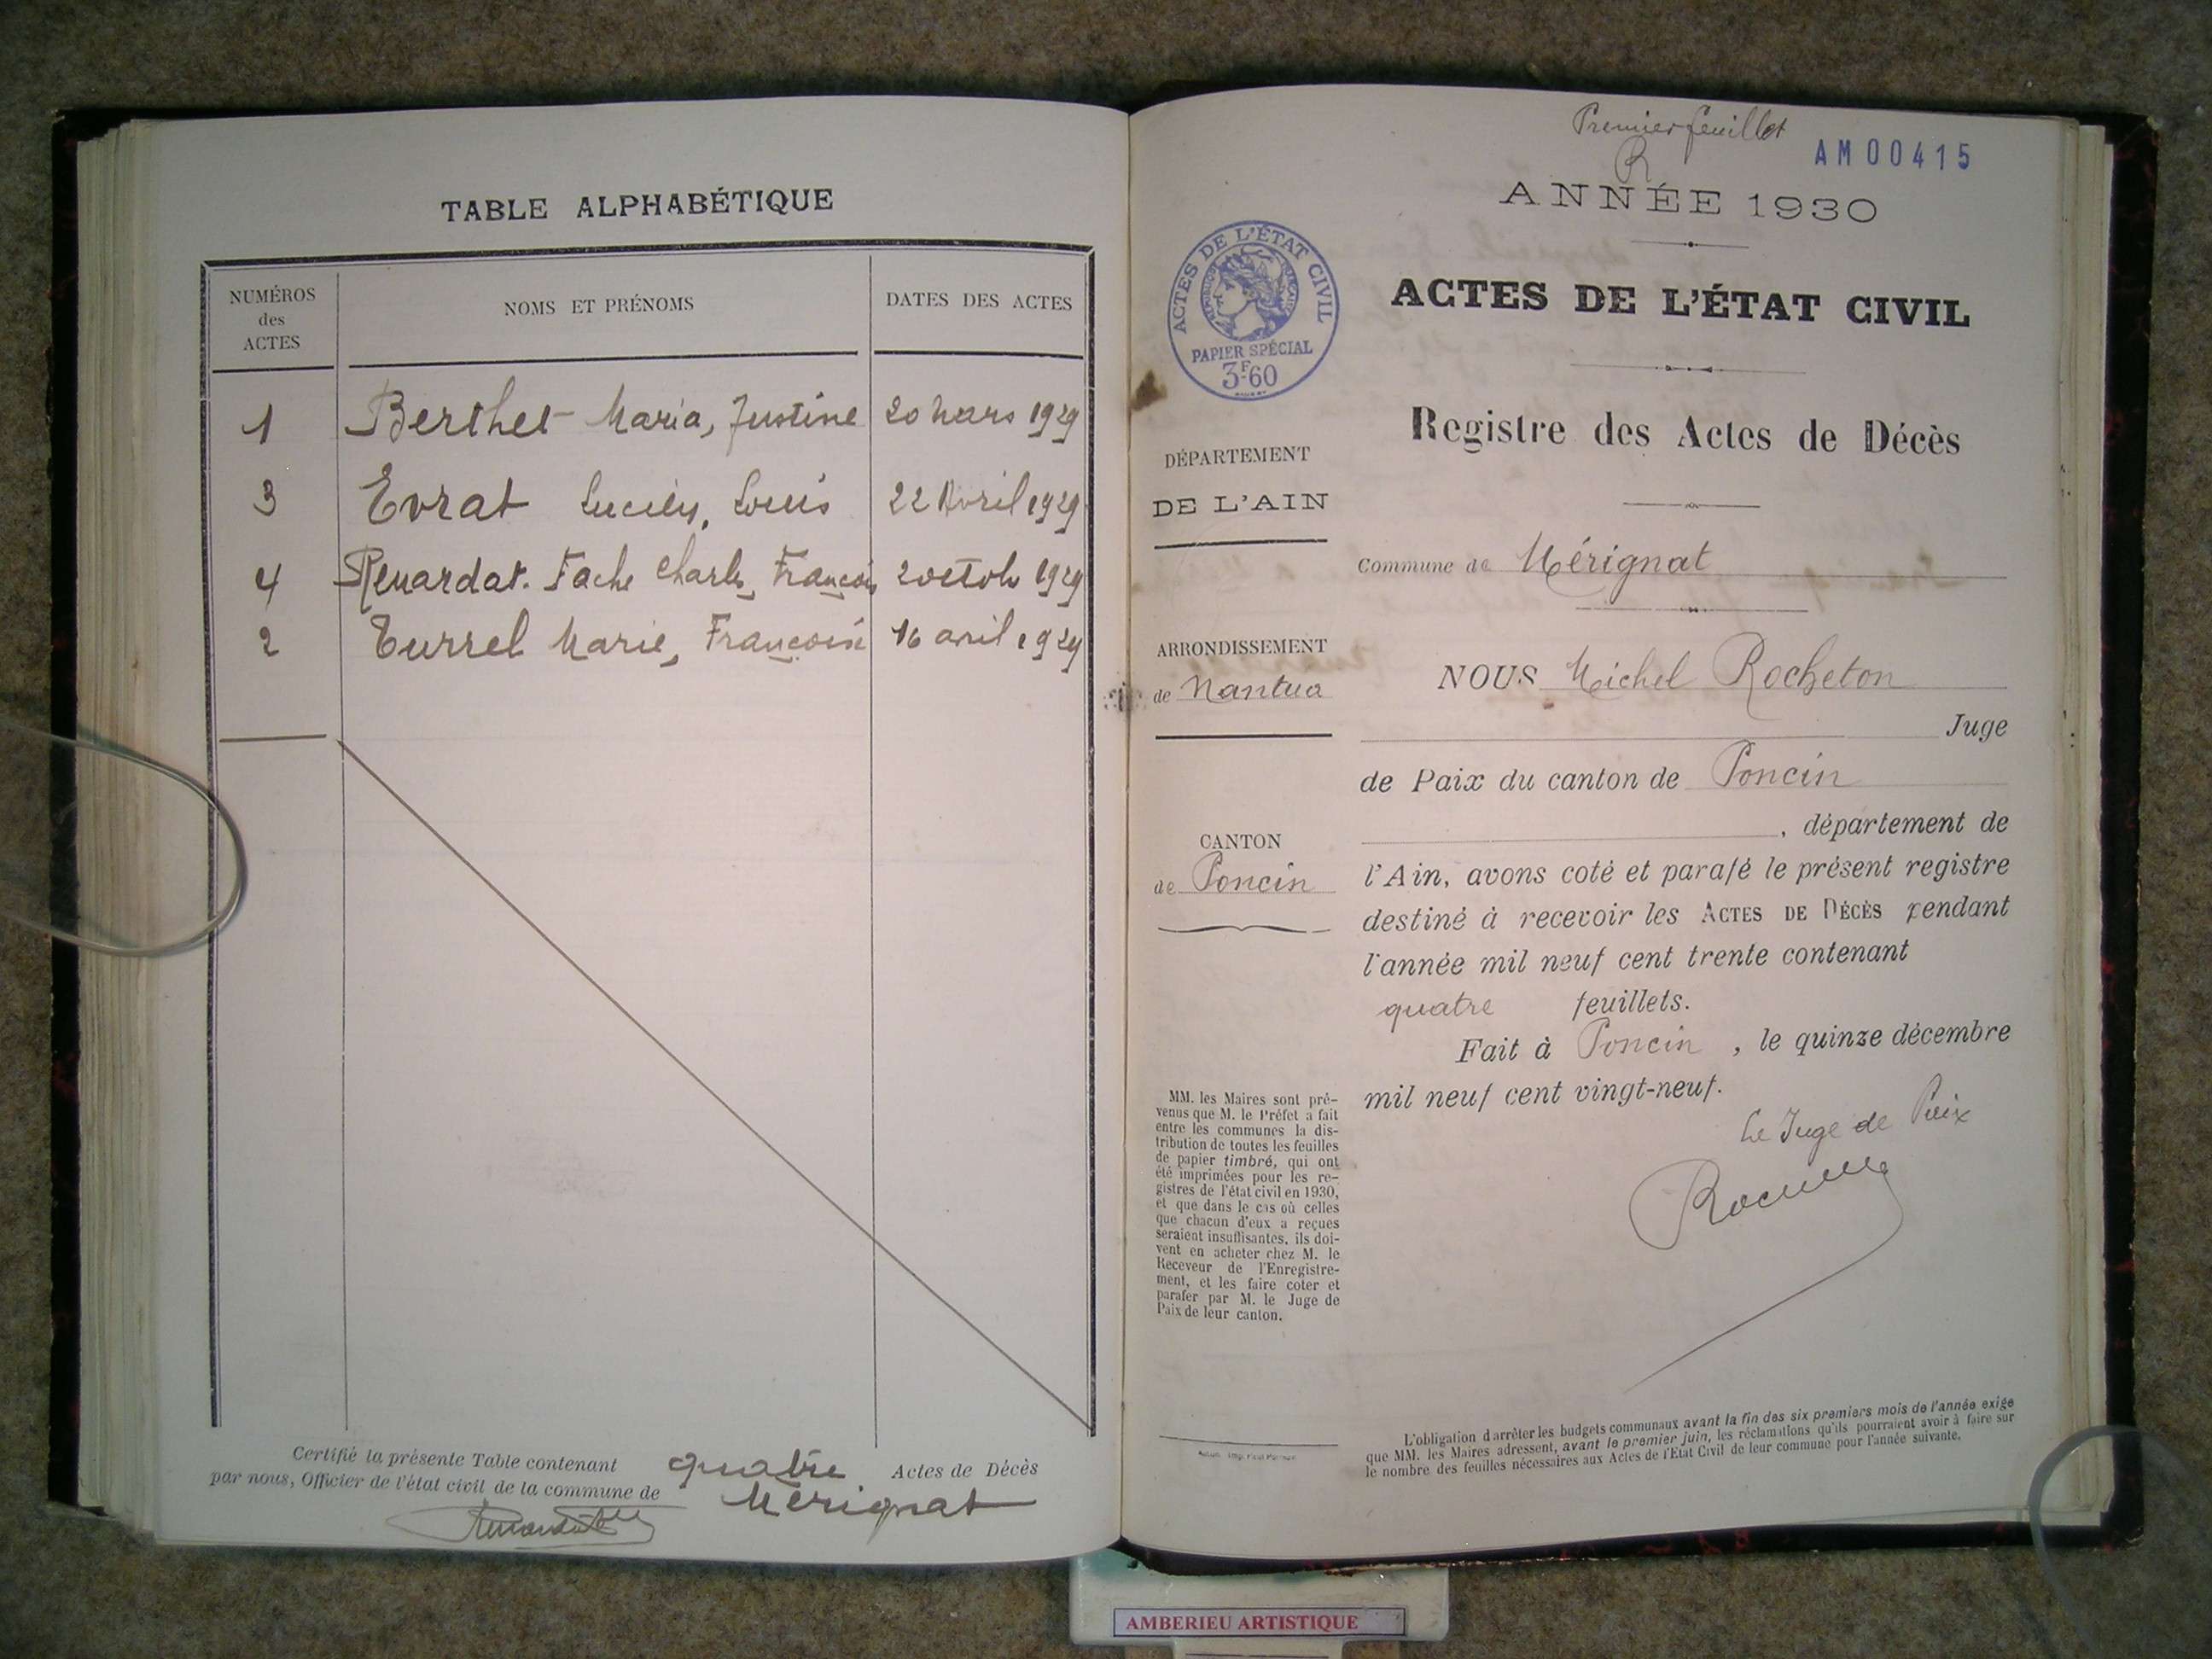 TABLE ALPHABÉTIQUE
NUMÉROS
des
ACTES
NOMS ET PRÉNOMS
DATES DES ACTES
1 Berthet Maria, Justine 20 Mars 1929
3 Evrat Lucien, Louis 22 Avril 1929
4 Renardat. Fache Charles, François 2 octob 1929
2 Turrel Marie, Françoise 16 avril 1929
Certifié la présente Table contenant quatre Actes de Décès
par nous, Officier de l'état civil de la commune de Mérignat
Premier feuillet
R
AM00415
ANNÉE 1930
ACTES DE L'ÉTAT CIVIL
RÉPUBLIQUE FRANÇAISE
PAPIER SPÉCIAL
3F60
ACTES DE L'ÉTAT CIVIL
Registre des Actes de Décès
DÉPARTEMENT
DE L'AIN
ARRONDISSEMENT
de Nantua
CANTON
de Poncin
MM. les Maires sont pré-
venus que M. le Préfet a fait
entre les communes la dis-
tribution de toutes les feuilles
de papier timbré, qui ont
été imprimées pour les re-
gistres de l'état civil en 1930,
et que dans le cas où celles
que chacun d'eux a reçues
seraient insuffisantes, ils doi-
vent en acheter chez M. le
Receveur de l'Enregistre-
ment, et les faire coter et
parafer par M. le Juge de
Paix de leur canton.
Commune de Mérignat
NOUS Michel Rocheton
Juge
de Paix du canton de Poncin
, département de
l'Ain, avons coté et parafé le présent registre
destiné à recevoir les ACTES DE DÉCÈS pendant
l'année mil neuf cent trente contenant
quatre feuillets.
Fait à Poncin, le quinze décembre
mil neuf cent vingt-neuf.
Le Juge de Paix
L'obligation d'arrêter les budgets communaux avant la fin des six premiers mois de l'année exige
que MM. les Maires adressent, avant le premier juin, les réclamations qu'ils pourraient avoir à faire sur
le nombre des feuilles nécessaires aux Actes de l'Etat Civil de leur commune pour l'année suivante.
AMBERIEU ARTISTIQUE